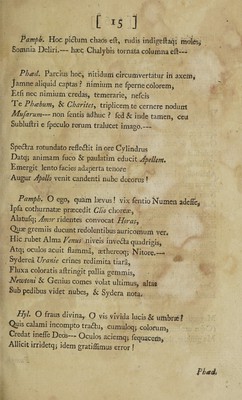 [ 15 ]
Pamph. Hoc pictum chaos est, rudis indigestaq; moles,
Somnia Deliri.--- hæc Chalybis tornata columna est---
Phæd. Parcius hoc, nitidum circumvertatur in axem,
Jamne aliquid captas? nimium ne sperne colorem,
Essi nec nimium credas, temerarie, nescis
Te Phœbum, & Charites, triplicem te cernere nodum
Musarum--- non sentis adhuc? sed & inde tamen, ceu
Sublustri e speculo rorum tralucet imago.---
Spectra rotundato reflectit in ore Cylindrus
Datq; animam fuco & paulatim educit Apellem.
Emergit lento facies adaperta tenore
Augur Apollo venit candenti nube decorus!
Pamph. O ego, quam lævus! vix sentio Numen adesse,
Ipsa cothurnatæ præcedit Clio choreæ,
Alatusq; Amor ridentes convocat Horas,
Quæ gremiis ducunt redoluntibus auricomum ver.
Hic rubet Alma Venus niveis invecta quadrigis,
Atq; oculos acuit flammâ, æthereoq; Nitore.---
Sydereâ Uranie crines redimita tiarâ,
Fluxa coloratis astringit pallia gemmis,
Newtoni & Genius comes volat ultimus, altas
Sub pedibus videt nubes, & Sydera nota.
Hyl. O fraus divina, O vis vivida lucis & umbræ!
Quis calami incompto tractu, cumuloq; colorum,
Credat inesse Deos--- Oculos aciemq; sequacem,
Allicit irridetq; idem gratissimus error!
Phæd.